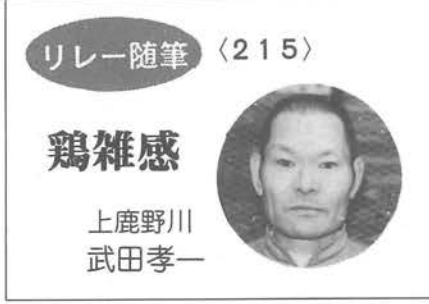 リレー随筆 〈215〉
鶏雑感
上鹿野川
武田孝一